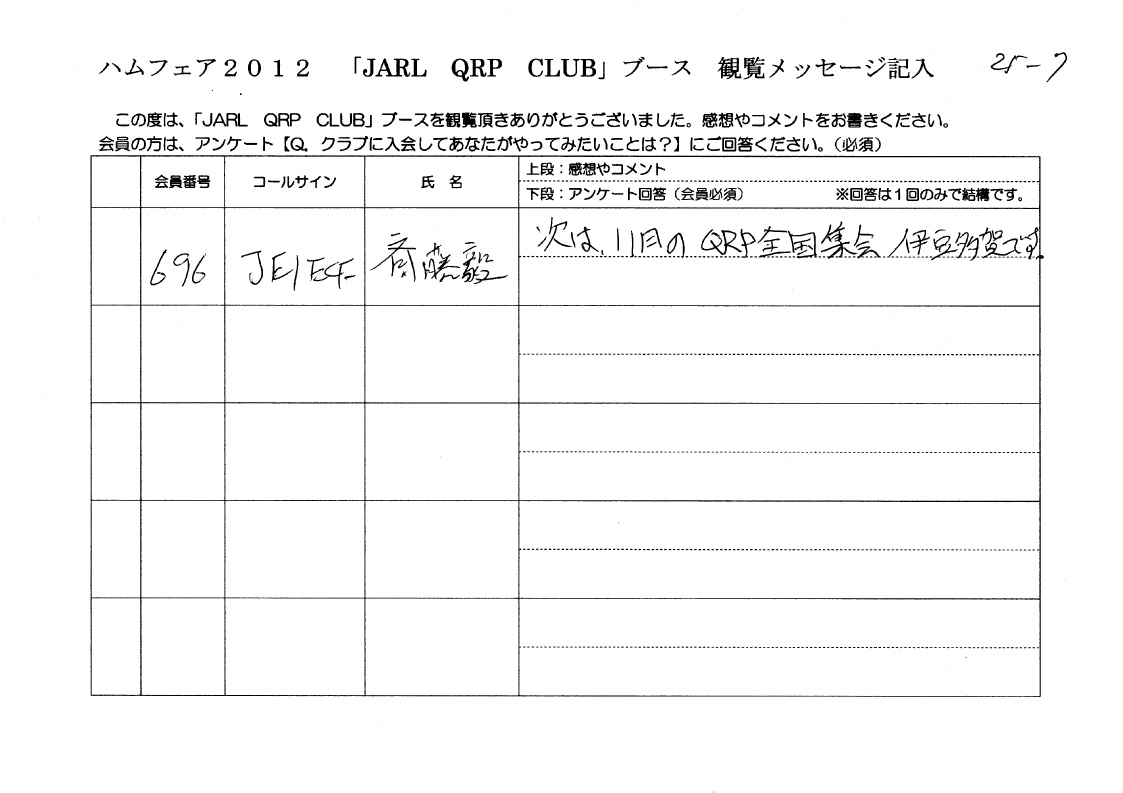 ハムフェア2012 「JARL QRP CLUB」ブース 観覧メッセージ記入 25-7
この度は、「JARL QRP CLUB」ブースを観覧頂きありがとうございました。感想やコメントをお書きください。
会員の方は、アンケート【Q. クラブに入会してあなたがやってみたいことは?】にご回答ください。(必須)
会員番号 コールサイン 氏 名 上段:感想やコメント
下段:アンケート回答(会員必須) ※回答は1回のみで結構です。
次は、11月のQRP全国集会 伊豆多賀です。
696 JE1ECF 斉藤毅